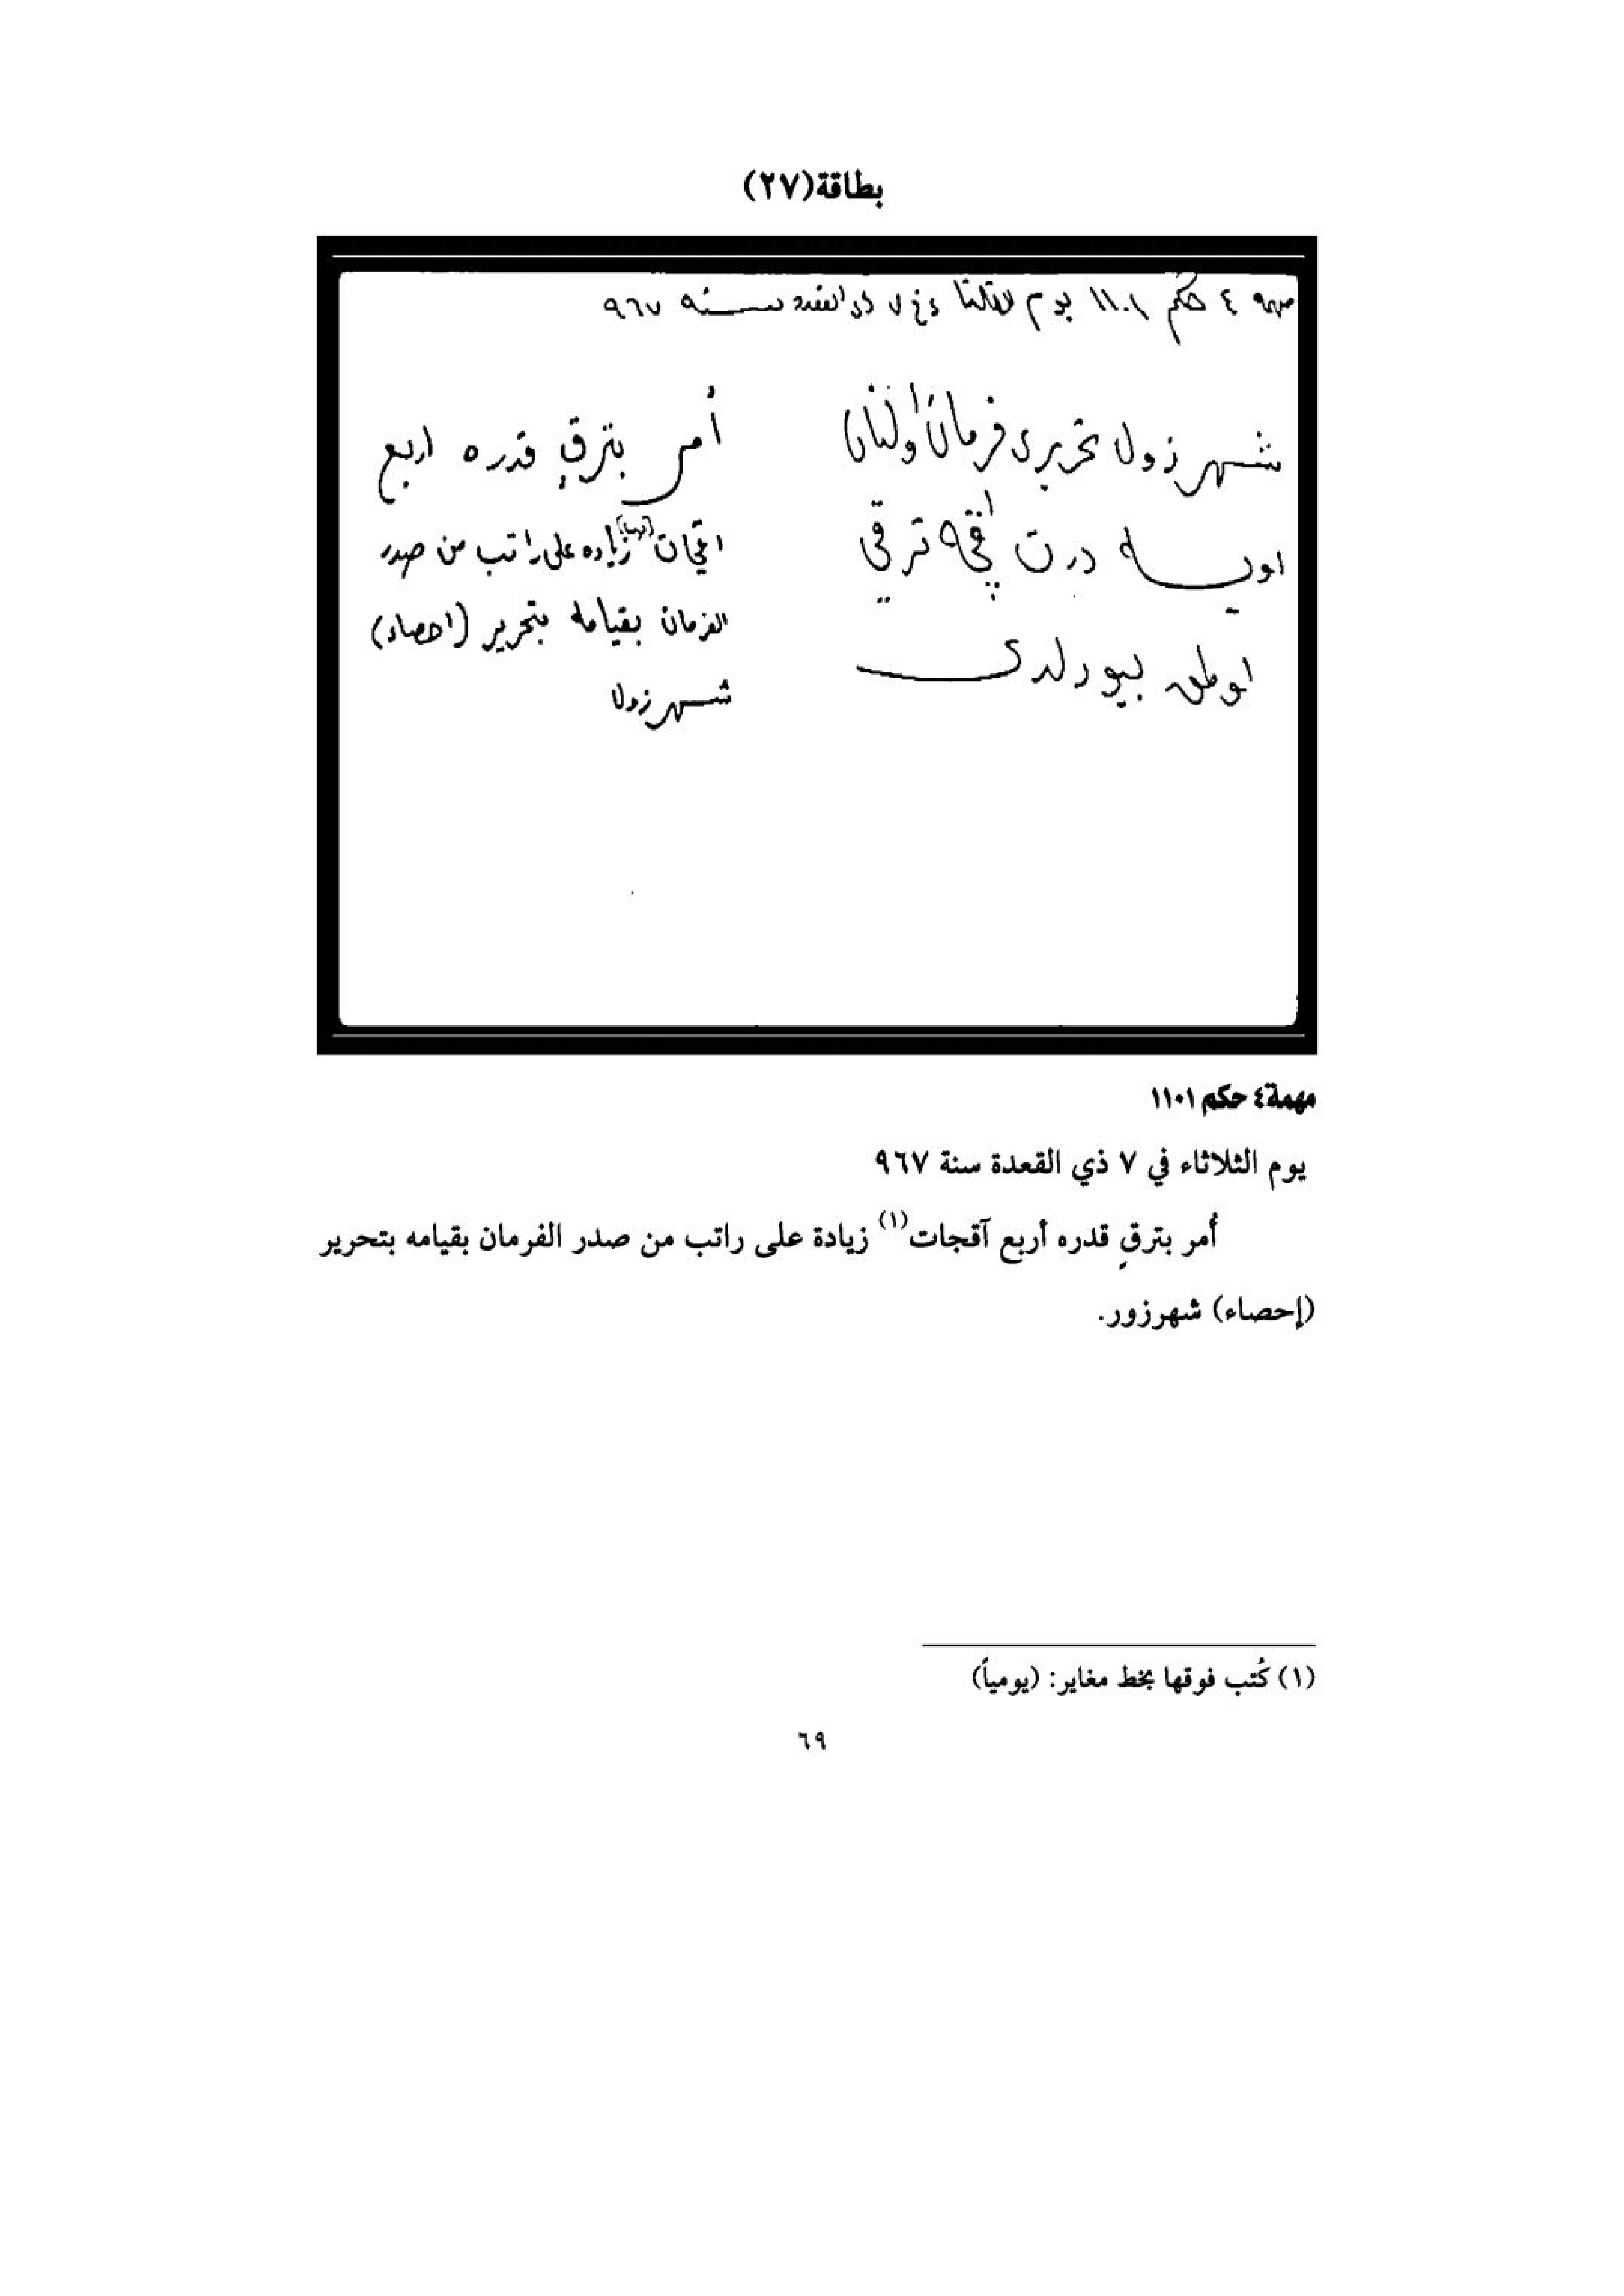 بطاقة(٢٧)
مهمه ٤ حكم ١١٠١ يوم الثلاثا في ٧ ذي القعده سنه ٩٦٧
شهر زول تحريرى فرمان اولنان
درت اقچه ترقي
بيورلدى
أمر بترقٍ قدره اربع
اقجات زياده على راتب من صدر
الفرمان بقيامه بتحرير (احصاء)
شهرزول
مهمة٤ حكم ١١٠١
يوم الثلاثاء في ٧ ذي القعدة سنة ٩٦٧
أُمر بترقٍ قدره أربع آقجات(١) زيادة على راتب من صدر الفرمان بقيامه بتحرير
(إحصاء) شهرزور.
(١) كُتب فوقها بخط مغاير: (يومياً)
٦٩